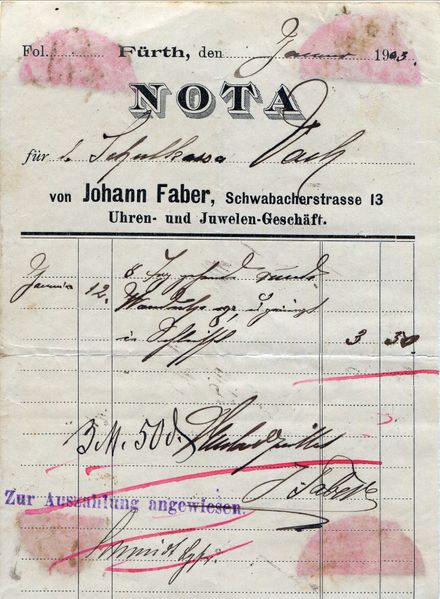 Fol. Fürth, den Januar 1903.
NOTA
für d. Schulkassa Vach
von Johann Faber, Schwabacherstrasse 13
Uhren- und Juwelen-Geschäft.
Januar 12. 8 Tag gehende runde
Wanduhr
in Schulhs 3 50
3 M. 50 d.
J. Faber
Zur Auszahlung angewiesen.
Schmidt